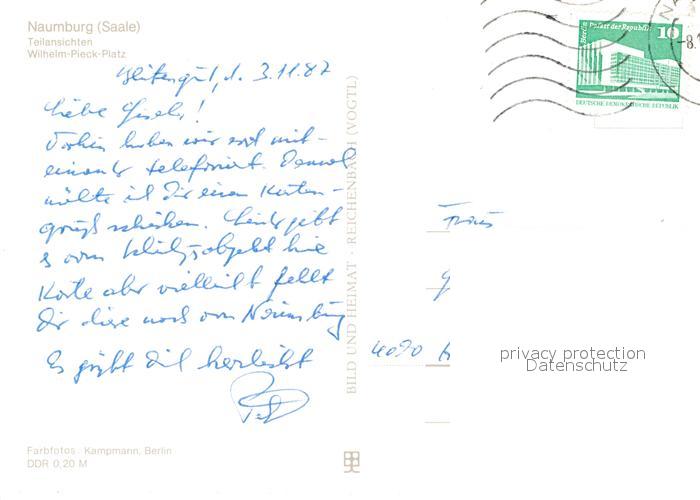 Naumburg (Saale)
Teilansichten
Wilhelm-Pieck-Platz
Berlin Palast der Republik
10
DEUTSCHE DEMOKRATISCHE REPUBLIK
-8.1
d. 3.11.87
Liebe Gisela!
Vorhin haben wir erst mit-
einander telefoniert. Dennoch
möchte ich Dir einen Karten-
gruß schicken. Leider gibt
es vom keine
Karte aber vielleicht gefällt
Dir diese noch von Naumburg
Es grüßt Dich herzlichst
BILD UND HEIMAT · REICHENBACH (VOGTL)
Frau
G
4090 H
privacy protection
Datenschutz
Farbfotos: Kampmann, Berlin
DDR 0,20 M